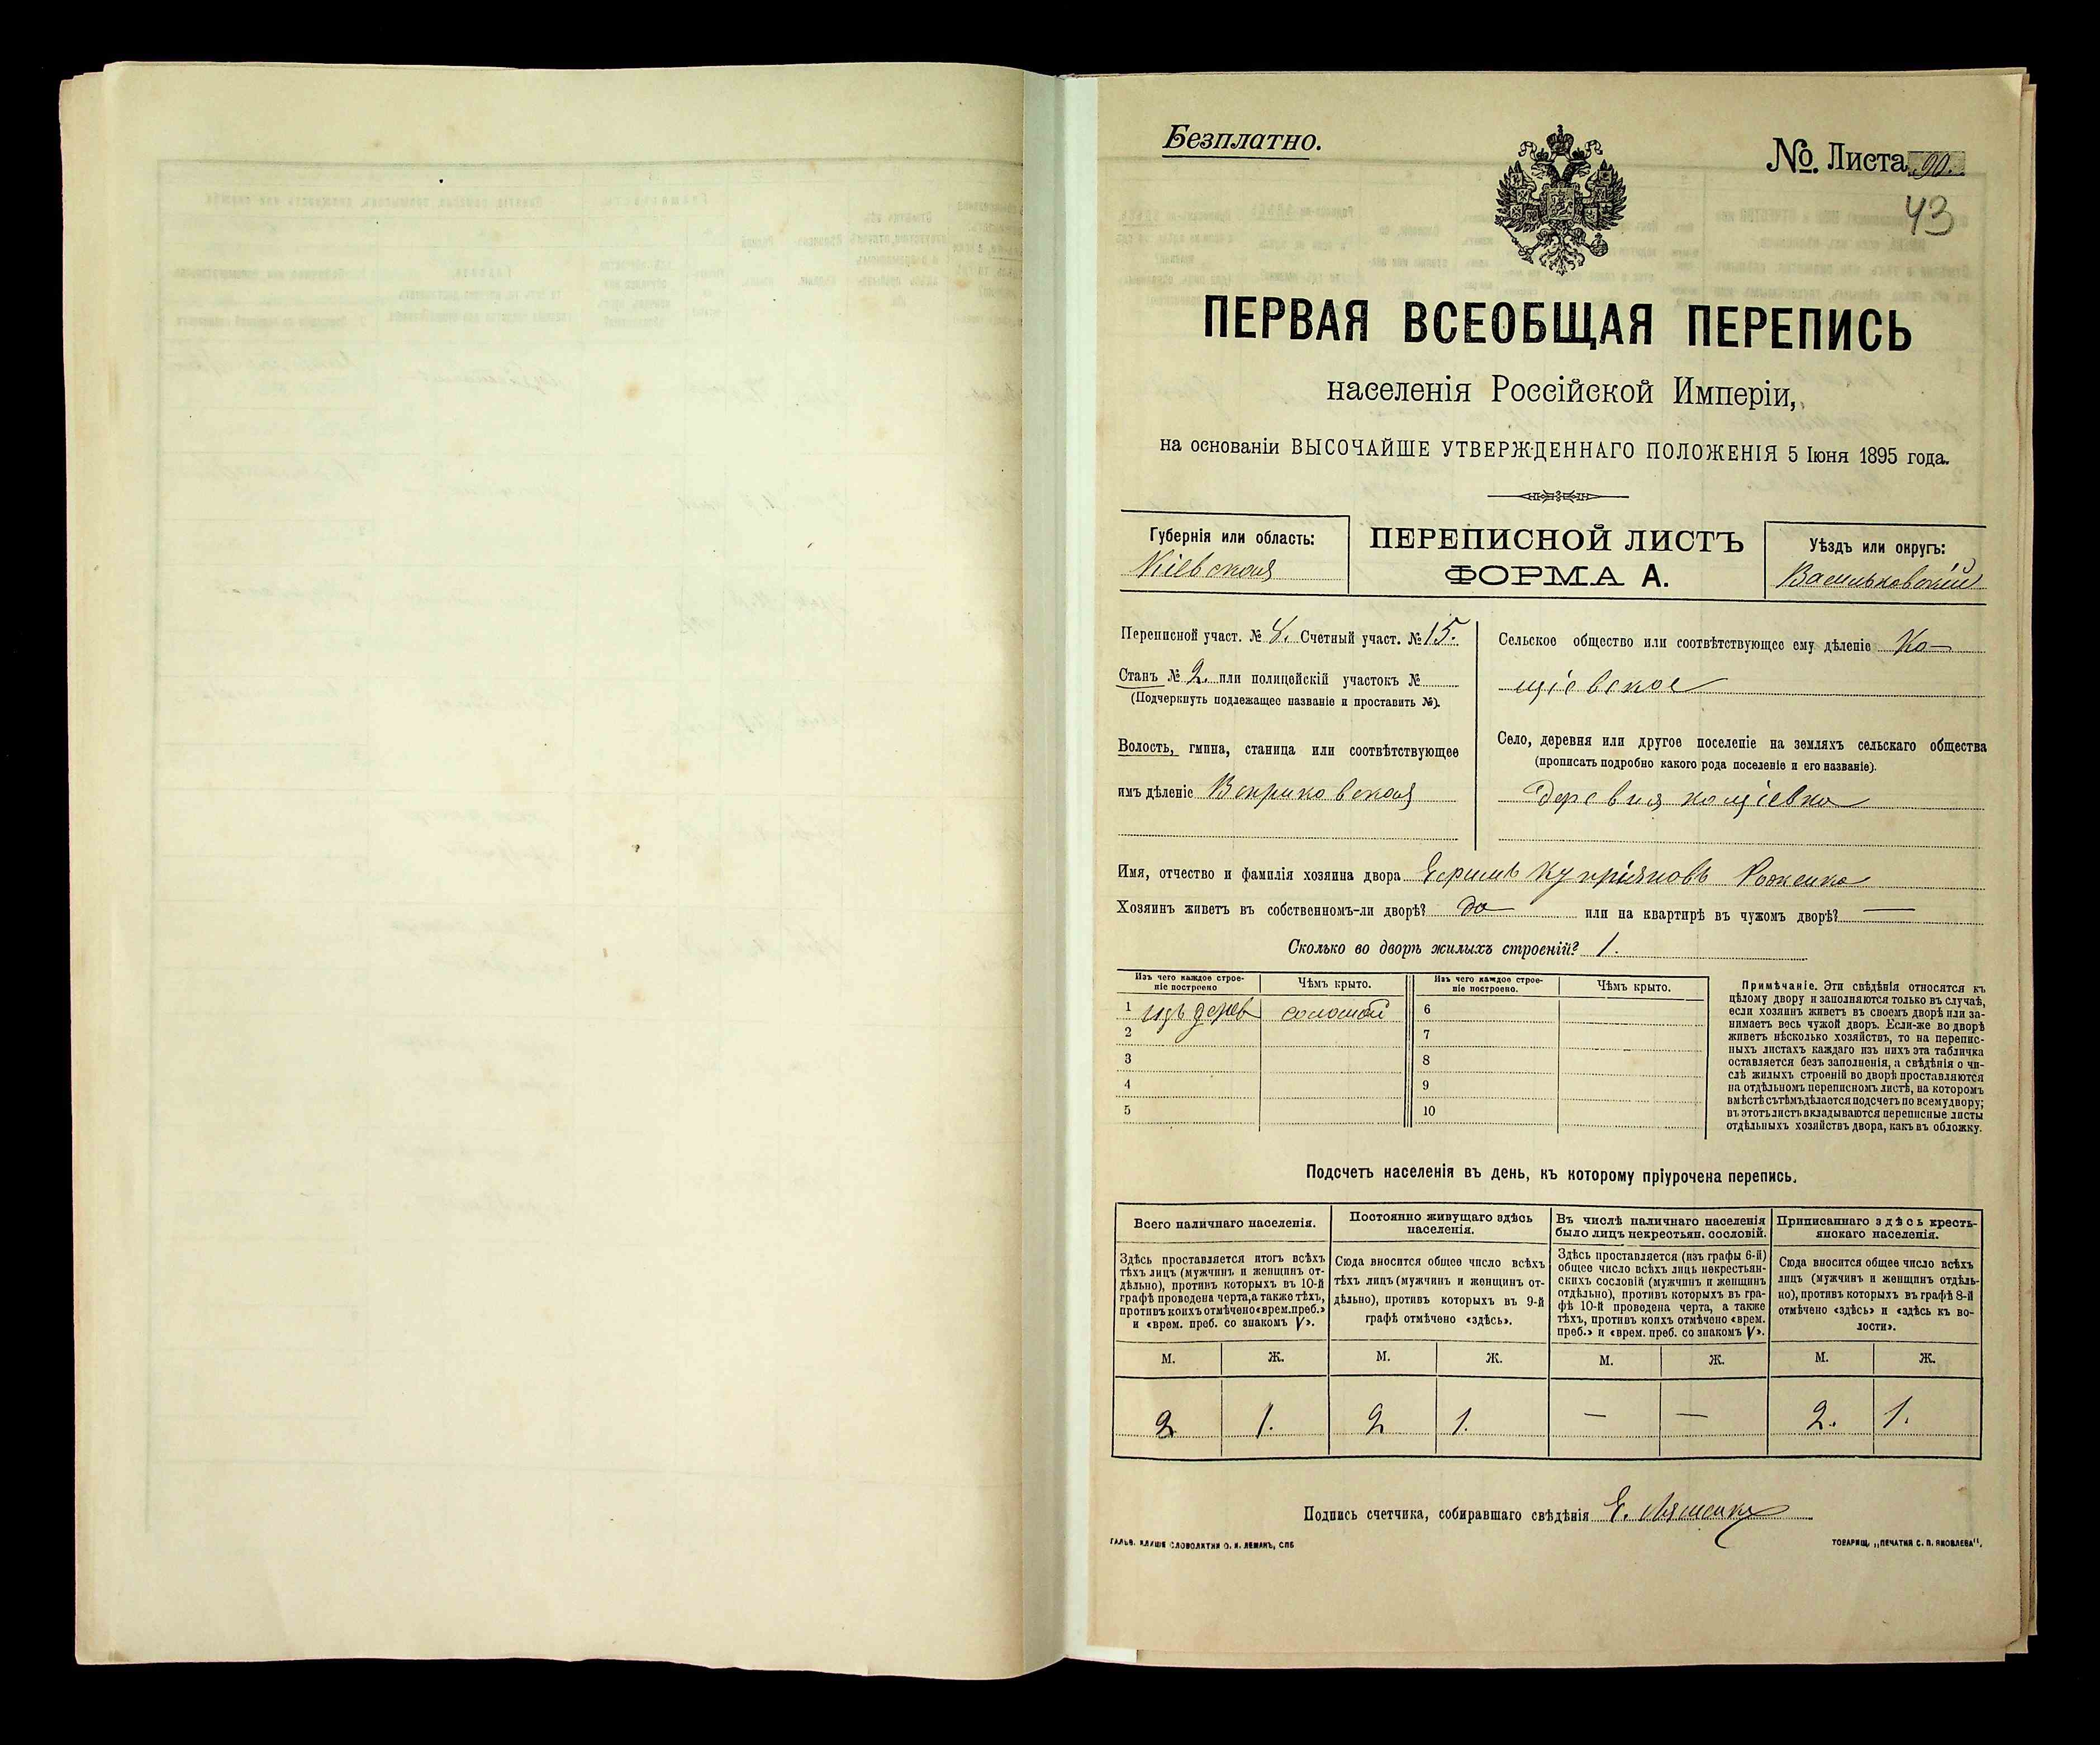 Безплатно.
№. Листа 90.
43
ПЕРВАЯ ВСЕОБЩАЯ ПЕРЕПИСЬ
населенія Россійской Имперіи,
на основаніи ВЫСОЧАЙШЕ УТВЕРЖДЕННАГО ПОЛОЖЕНІЯ 5 Іюня 1895 года.
Губернія или область:
Кіевская
ПЕРЕПИСНОЙ ЛИСТЪ
ФОРМА А.
Уѣздъ или округъ:
Васильковскій
Переписной участ. № 8. Счетный участ. № 15.
Станъ № 2. или полицейскій участокъ №
(Подчеркнуть подлежащее названіе и проставить №).
Волость, гмина, станица или соотвѣтствующее
имъ дѣленіе Веприковская
Сельское общество или соотвѣтствующее ему дѣленіе Ко-
щіевское
Село, деревня или другое поселеніе на земляхъ сельскаго общества
(прописать подробно какого рода поселеніе и его названіе).
деревня кощіевка
Имя, отчество и фамилія хозяина двора Ефимъ Купріяновъ Роженко
Хозяинъ живетъ въ собственномъ-ли дворѣ? да или на квартирѣ въ чужомъ дворѣ? —
Сколько во дворѣ жилыхъ строеній? 1.
Изъ чего каждое строе-
ніе построено
Чѣмъ крыто.
Изъ чего каждое строе-
ніе построено.
Чѣмъ крыто.
1 изъ дерев соломой 6
2 7
3 8
4 9
5 10
Примѣчаніе. Эти свѣдѣнія относятся къ
цѣлому двору и заполняются только въ случаѣ,
если хозяинъ живетъ въ своемъ дворѣ или за-
нимаетъ весь чужой дворъ. Если-же во дворѣ
живетъ нѣсколько хозяйствъ, то на перепис-
ныхъ листахъ каждаго изъ нихъ эта табличка
оставляется безъ заполненія, а свѣдѣнія о чи-
слѣ жилыхъ строеній во дворѣ проставляются
на отдѣльномъ переписномъ листѣ, на которомъ
вмѣстѣ съ тѣмъ дѣлается подсчетъ по всему двору;
въ этотъ листъ вкладываются переписные листы
отдѣльныхъ хозяйствъ двора, какъ въ обложку.
Подсчетъ населенія въ день, къ которому пріурочена перепись.
Всего наличнаго населенія.
Здѣсь проставляется итогъ всѣхъ
тѣхъ лицъ (мужчинъ и женщинъ от-
дѣльно), противъ которыхъ въ 10-й
графѣ проведена черта, а также тѣхъ,
противъ коихъ отмѣчено «врем. преб.»
и «врем. преб. со знакомъ V».
Постоянно живущаго здѣсь
населенія.
Сюда вносится общее число всѣхъ
тѣхъ лицъ (мужчинъ и женщинъ от-
дѣльно), противъ которыхъ въ 9-й
графѣ отмѣчено «здѣсь».
Въ числѣ наличнаго населенія
было лицъ некрестьян. сословій.
Здѣсь проставляется (изъ графы 6-й)
общее число всѣхъ лицъ некрестьян-
скихъ сословій (мужчинъ и женщинъ
отдѣльно), противъ которыхъ въ гра-
фѣ 10-й проведена черта, а также
тѣхъ, противъ коихъ отмѣчено «врем.
преб.» и «врем. преб. со знакомъ V».
Приписаннаго здѣсь кресть-
янскаго населенія.
Сюда вносится общее число всѣхъ
лицъ (мужчинъ и женщинъ отдѣль-
но), противъ которыхъ въ графѣ 8-й
отмѣчено «здѣсь» и «здѣсь къ во-
лости».
М. Ж. М. Ж. М. Ж. М. Ж.
2 1. 2 1. — — 2. 1.
Подпись счетчика, собиравшаго свѣдѣнія Е. Ляшенко
ГАЛЬВ. КЛИШЕ СЛОВОЛИТНИ О. И. ЛЕМАНЪ, СПБ
ТОВАРИЩ. „ПЕЧАТНЯ С. П. ЯКОВЛЕВА".